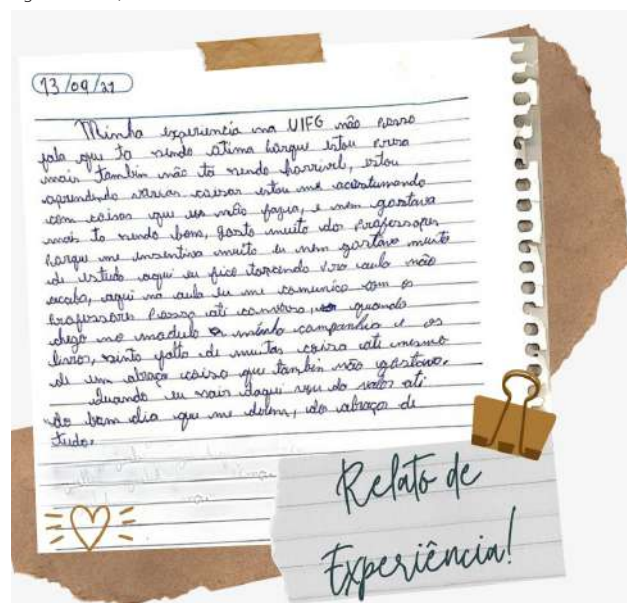 13/09/21
Minha experiencia na UIFG não posso
fala que ta sendo otima porque estou presa
mais tambin não tá sendo horrivel, estou
aprendendo varias coisas estou me acostumando
com coisas que eu não fazia, e nem gostava
mais to sendo bom, gosto muito dos professores
porque me insentiva muito eu nem gostava muito
de estudo aqui eu fico torcendo pra aula não
acaba, aqui na aula eu me comunico com os
professores posso ati conversa, quando
chego no modulo a minha companhia e os
livros, sinto falta de muitas coisa ati mesmo
de um abraço coisa que tanbin não gostava.
Quando eu sair daqui vou da valor ati
do bom dia que me derem, do abraço de
tudo.
Relato de
Experiência!